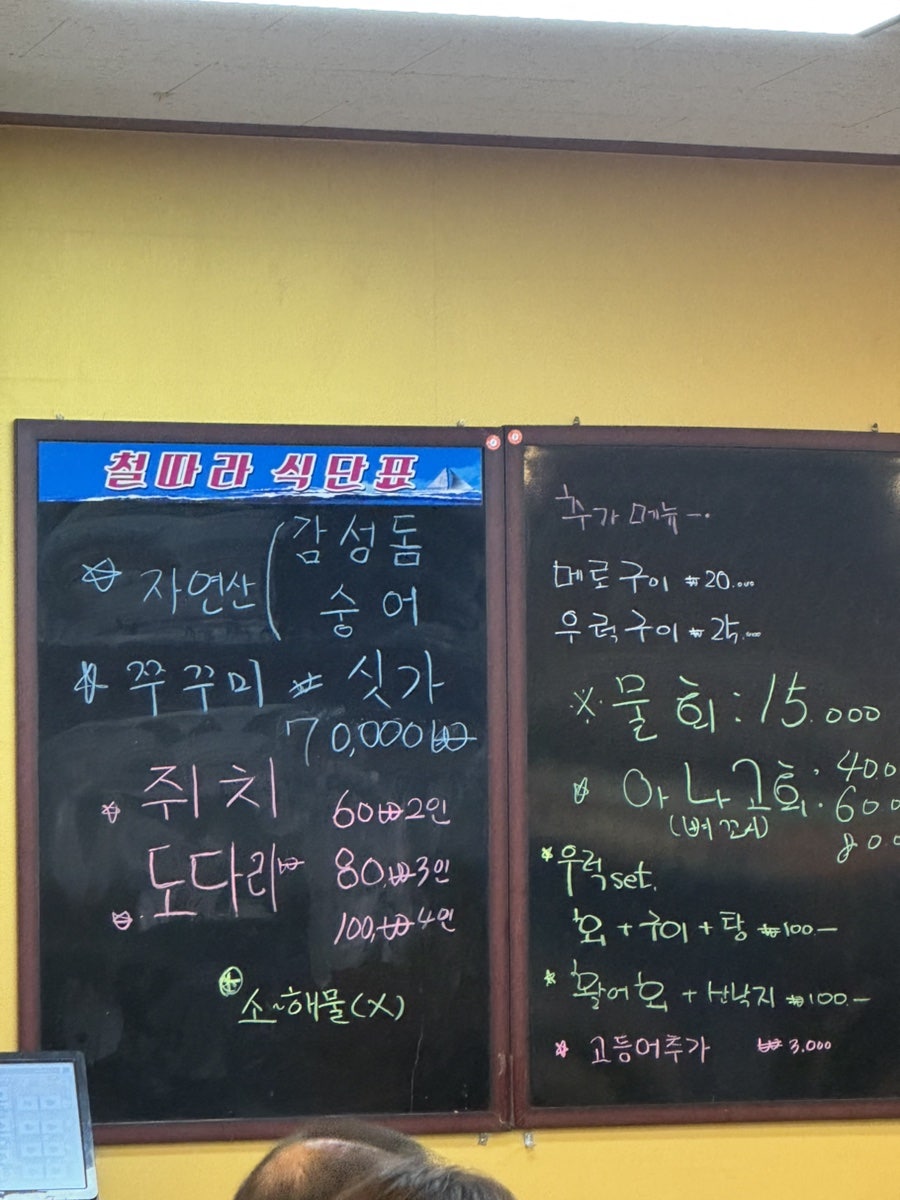 철따라 식단표
자연산 ( 감성돔
숭어
쭈꾸미 싯가
70,000₩
쥐치 60₩2인
도다리 80,₩3인
100,₩4인
소~해물(X)
추가 메뉴
메로구이 ₩20.000
우럭구이 ₩25.000
※ 물회: 15.000
아나고회: 400
(뼈꼬시) 600
80.0
우럭 set.
회 + 구이 + 탕 ₩100.-
활어회 + 산낙지 ₩100.-
고등어추가 ₩3.000